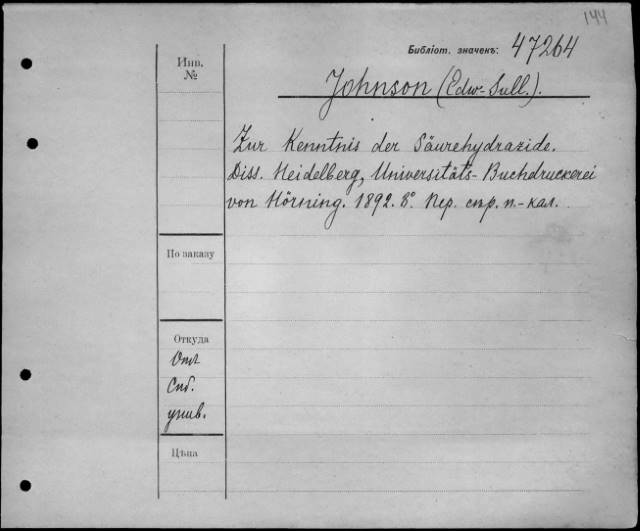 144
Библіот. значекъ: 47264
Инв.
№
Johnson (Edw-Sull.).
Zur Kenntnis der Säurehydrazide.
Diss. Heidelberg, Universitäts-Buchdruckerei
von Hörning. 1892. 8º. Пер. стр. п.-кал.
По заказу
Откуда
Отъ
Спб.
унив.
Цѣна